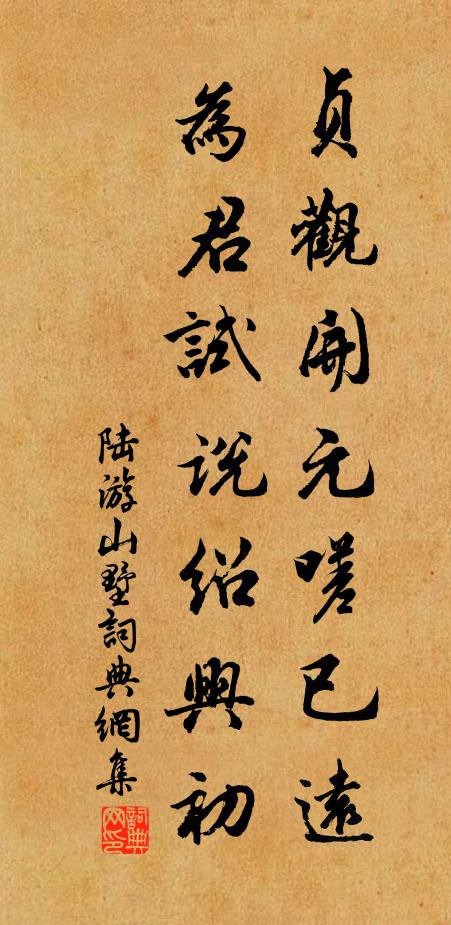 貞觀開元嗟已遠
為君試說紹興初
陆游山墅詞典網集
詞典網印